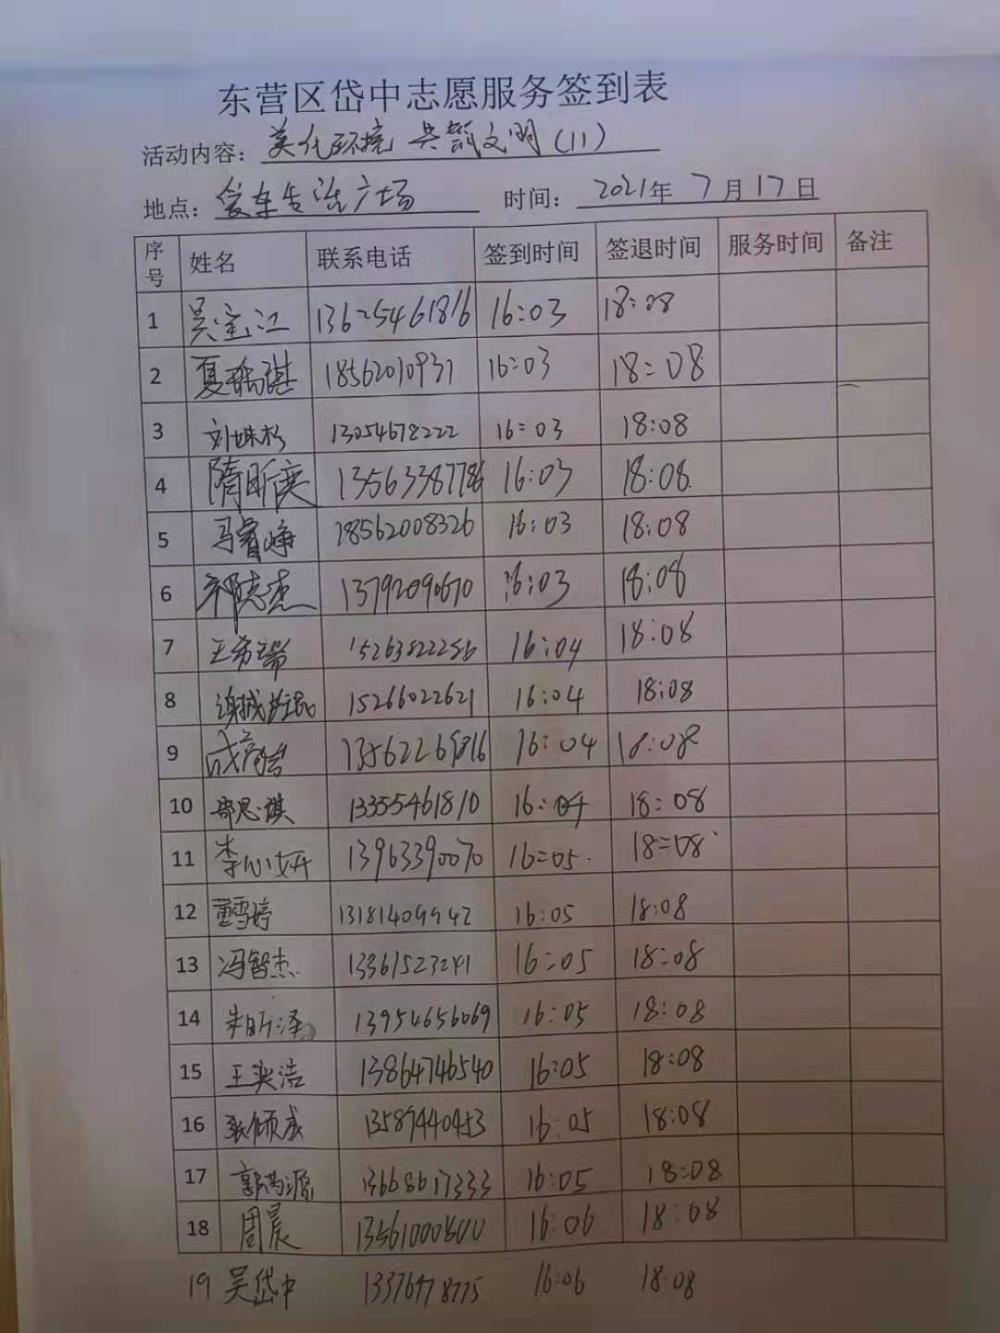 东营区岱中志愿服务签到表
活动内容: 美化环境 共 文明 (11)
地点: 生活广场 时间: 2021年 7月17日
序号 姓名 联系电话 签到时间 签退时间 服务时间 备注
1 吴宝江 13625461816 16:03 18:08
2 夏 琪 18562010937 16:03 18:08
3 刘 杉 13054678222 16:03 18:08
4 隋昕奕 13563387786 16:03 18:08
5 马睿峥 18562008326 16:03 18:08
6 祁志杰 13792090670 16:03 18:08
7 王希瑞 15263822256 16:04 18:08
8 15266022621 16:04 18:08
9 成 13562269816 16:04 18:08
10 郭思淇 13355461810 16:04 18:08
11 李心妍 13963390070 16:05 18:08
12 董雪婷 13181409942 16:05 18:08
13 冯智杰 13361523241 16:05 18:08
14 朱昕泽 13954656069 16:05 18:08
15 王奕洁 13864746540 16:05 18:08
16 张倾成 13589440453 16:05 18:08
17 郭 源 13668617333 16:05 18:08
18 周晨 13561000500 16:06 18:08
19 吴岱中 13376478775 16:06 18:08